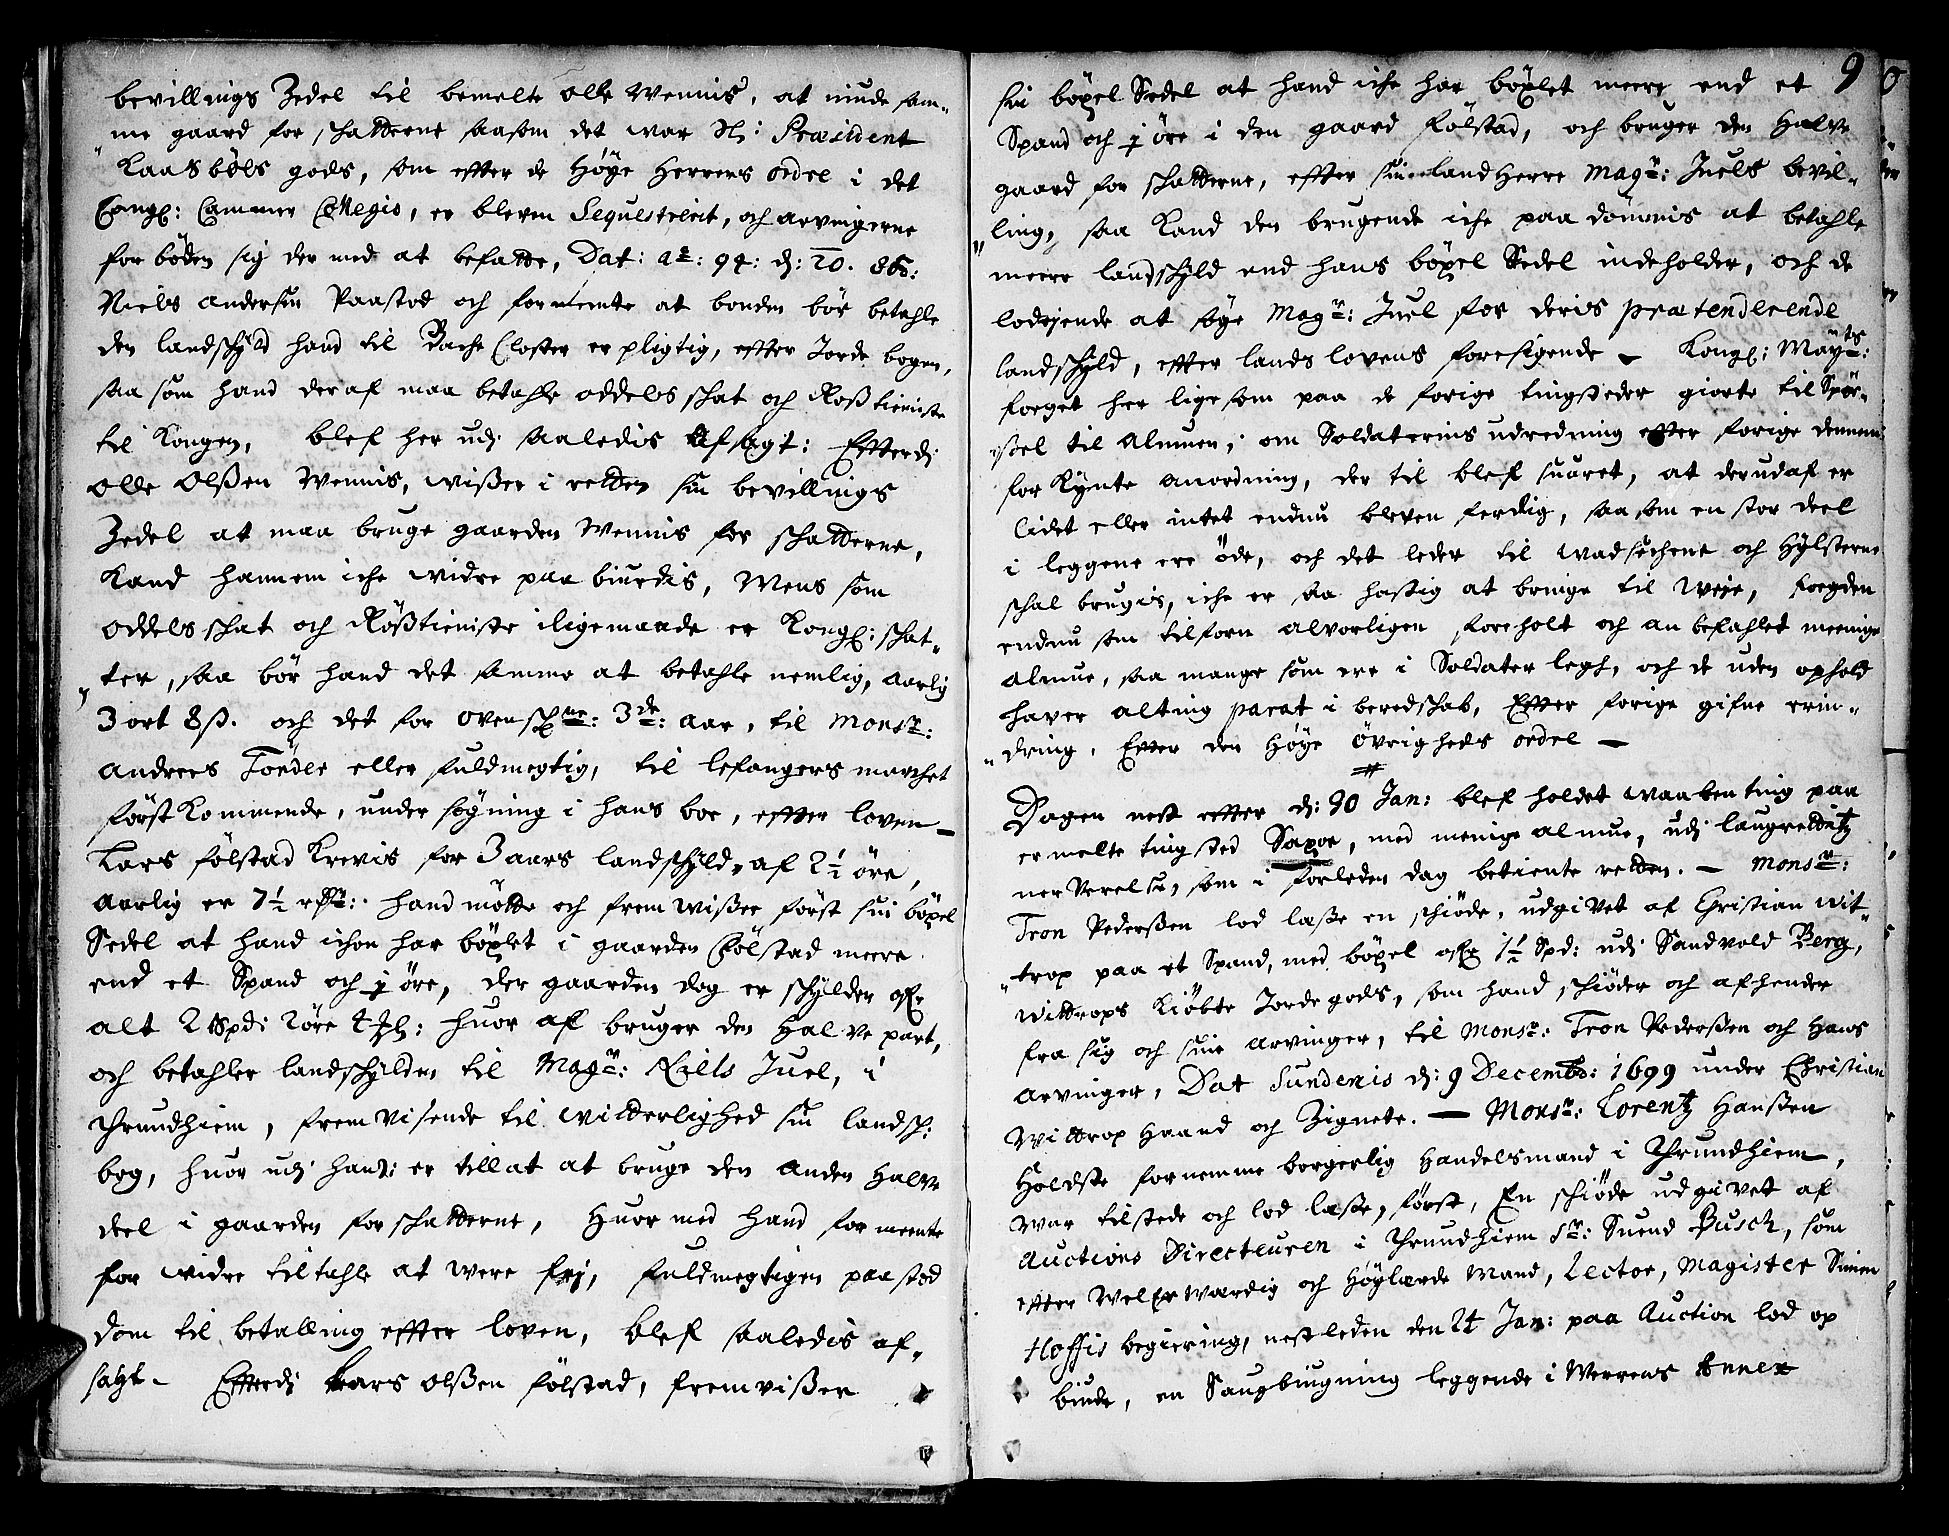 bevillings Zedel til bemelte olle Wennis, at niude sam-
me gaard for schatterne saasom det war Sl: Præsident
Kaasbøls gods, som effter de Høye Herrers ordre i det
Kongl: Cammer Collegio, er bleven Sequestrerit, och arvingerne
forböden sig der med at befatte, Dat: ao: 94: d: 20. 8br:
Niels andersen Paastod och formeente at bonden bör betahle
den landschyld hand til Bache Closter er pligtig, effter Jorde bogen,
saa som hand deraf maa betahle oddels schat och Rostieniste
til Kongen, blef her udj saaledis afsagt: Effterdj
olle olßen Wennis, wißer i retten sin bevillings
Zedel at maa bruge gaarden Wennis for schatterne,
Kand hannem iche widre paa biurdis, Mens som
oddels schat och Roßtieniste iligemaade er Kongl: schat-
ter, saa bör hand det samme at betahle nemlig, aarlig
3 ort 8 ß. och det for ovenschr: 3de: aar, til Monsr:
andrees Tönder eller fuldmegtig, til lefangers marchet
först Kommende, under søgning i hans boe, effter loven —
Lars fölstad Krevis for 3 aars landschyld af 2½ öre,
aarlig er 7½ : hand mötte och fremwißer först sin böxel
Sedel at hand ichon har böxlet i gaarden Fölstad meere
end et Spand och 1 öre, der gaarden dog er schylder ofr
alt 2 Spd: 2 öre huor af bruger den Halve part,
och betahler landschylden til Magr: Niels Juel, i
Thrundhiem, fremvisende til witterlighed sin landsch:
bog, huor udj hand: er tillat at bruge den anden halve
deel i gaarden for schatterne, Huor med hand formeente
for widre tiltahle at were frj, fuldmegtigen paastod
dom til betalling effter loven, blef saaledis af-
sagt - Effterdj Lars olßen fölstad, fremvißer

9
sin böxel Sedel at hand iche har böxlet meere end et
Spand och 1 öre i den gaard Fölstad, och bruger den Halve
gaard for schatterne, effter sin landherre Magr: Juels bevil-
ling, saa Kand den brugende iche paa dömmis at betahle
meere landschyld end hans böxel Sedel indeholder, och de
lodejende at søge Magr: Juel for deris prætenderende
landschyld, effter lands lovens foresigende — Kongl: Mayts:
foeget her lige som paa de forige tingsteder giorte tilspör-
ßel til almuen, om Soldaternis udredning efter forige dennem
for Kynte anordning, der til blef suaret, at derudaf er
lidet eller intet endnu bleven ferdig, saa som en stor deel
i leggene ere öde, och det leder til wadsechene och Hylsterne
schal brugis, iche er saa hastig at bringe til weje, foegden
endnu som tilforn alvorligen foreholt och anbefahlet meenige
almue, saa mange som ere i Soldater legh, och de uden ophold
haver alting parat i beredschab, Efter forige gifne erin-
dring, Efter den Høye øvrigheds ordre —
Dagen nest effter d: 30 Jan: blef holdet waabenting paa
ermelte tingsted Saxoe, med menige almue, udj laugrettitz
ner verelse, som i forleden dag betiente retten. — Monsr:
Tron Pederßen lod læße en schiöde, udgivet af Christian wit-
trop paa et Spand, med böxel ofr 1½ Spd: udj Sandvold Berg,
Wittrops Kiöbte Jordegods, som hand schiöder och afhender
fra sig och sine arvinger, til Monsr: Tron Pederßen och Hans
arvinger, Dat Sundenis d: 9 Decembr: 1699 under Christian
Wittrop Haand och Zignete. — Monsr: Lorentz Hanßen
Holdste fornemme borgerlig Handelsmand i Thrundhiem,
war tilstede och lod læße, først, En schiöde udgivet af
Auctions Directeuren i Thrundhiem Sr: Suend Busch, som
effter Welerwærdig och Höylærde Mand, Lector, Magister Simen
Hoffis begiering, nestleden den 24 Jan: paa Auction lod op
biude, en Saugbiugning leggende i Werrens Annex